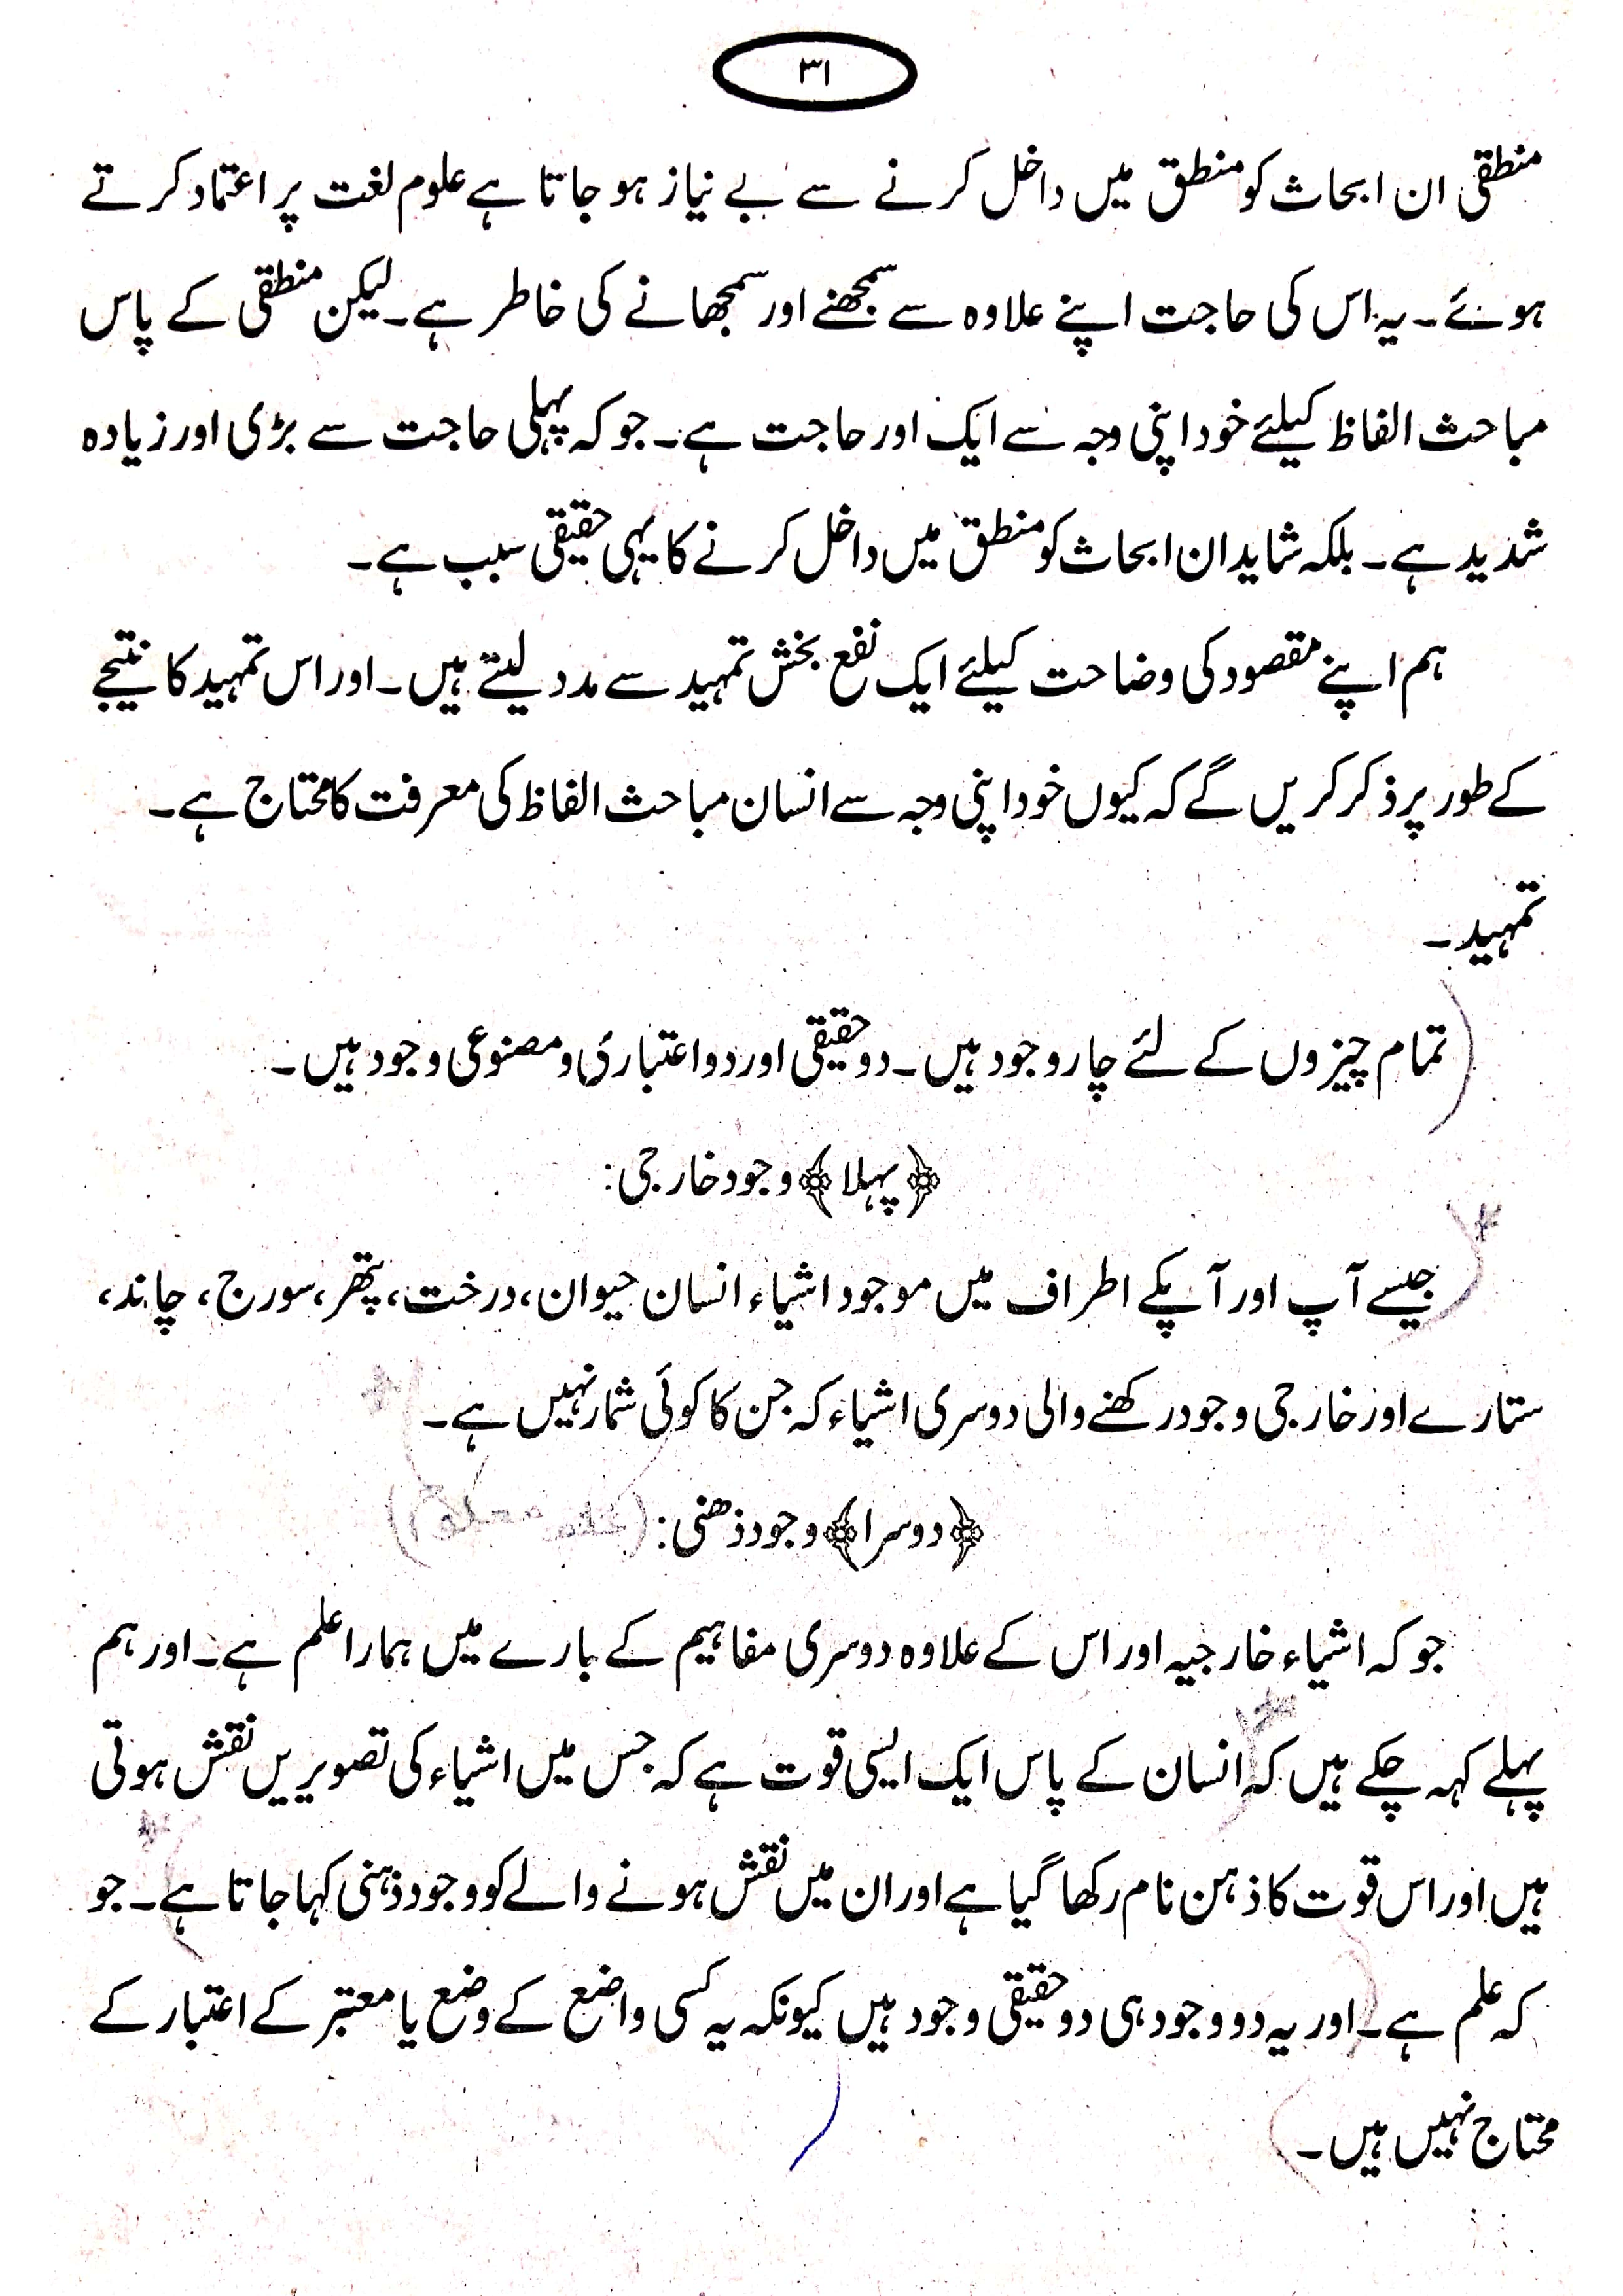 ۳۱
منطقی ان ابحاث کو منطق میں داخل کرنے سے بے نیاز ہو جاتا ہے علوم لغت پر اعتماد کرتے
ہوئے۔ یہ اس کی حاجت اپنے علاوہ سے سمجھنے اور سمجھانے کی خاطر ہے۔ لیکن منطقی کے پاس
مباحث الفاظ کیلئے خود اپنی وجہ سے ایک اور حاجت ہے۔ جو کہ پہلی حاجت سے بڑی اور زیادہ
شدید ہے۔ بلکہ شاید ان ابحاث کو منطق میں داخل کرنے کا یہی حقیقی سبب ہے۔
ہم اپنے مقصود کی وضاحت کیلئے ایک نفع بخش تمہید سے مدد لیتے ہیں۔ اور اس تمہید کا نتیجے
کے طور پر ذکر کریں گے کہ کیوں خود اپنی وجہ سے انسان مباحث الفاظ کی معرفت کا محتاج ہے۔
تمہید۔
تمام چیزوں کے لئے چار وجود ہیں۔ دو حقیقی اور دو اعتباری و مصنوعی وجود ہیں۔
﴿پہلا﴾ وجود خارجی:
جیسے آپ اور آپکے اطراف میں موجود اشیاء انسان حیوان، درخت، پتھر، سورج، چاند،
ستارے اور خارجی وجود رکھنے والی دوسری اشیاء کہ جن کا کوئی شمار نہیں ہے۔
﴿دوسرا﴾ وجود ذھنی:
جو کہ اشیاء خارجیہ اور اس کے علاوہ دوسری مفاہیم کے بارے میں ہمارا علم ہے۔ اور ہم
پہلے کہہ چکے ہیں کہ انسان کے پاس ایک ایسی قوت ہے کہ جس میں اشیاء کی تصویریں نقش ہوتی
ہیں اور اس قوت کا ذہن نام رکھا گیا ہے اور ان میں نقش ہونے والے کو وجود ذہنی کہا جاتا ہے۔ جو
کہ علم ہے۔ اور یہ دو وجود ہی دو حقیقی وجود ہیں کیونکہ یہ کسی واضع کے وضع یا معتبر کے اعتبار کے
محتاج نہیں ہیں۔